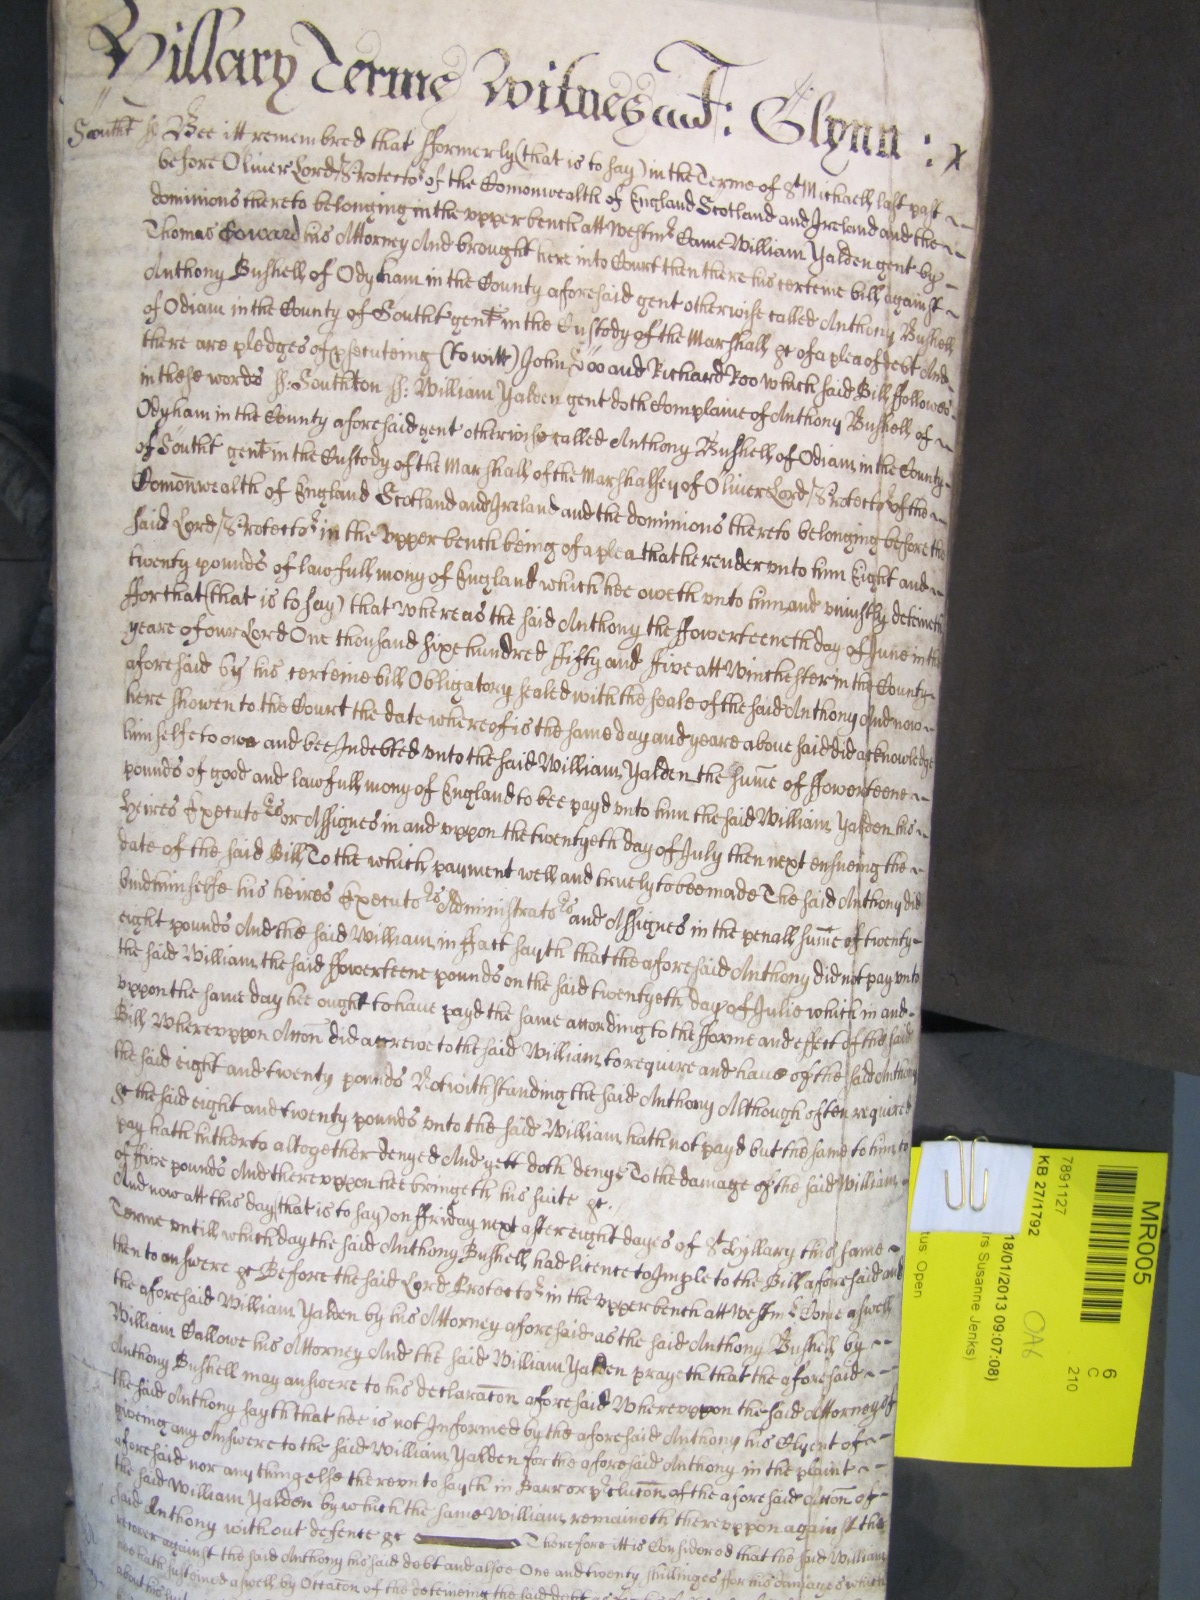 Hillary Terme Witnes J: Glynn : x
South't ss Bee itt remembred that fformerly (that is to say) in the Terme of St Michaell last past
before Oliver Lord Protector of the Comonwealth of England Scotland and Ireland and the
dominions thereto belonging in the upper bench att Westmr Came William Yalden gent by
Thomas Howard his Attorney And brought here into Court then there his certeine bill against
Anthony Bushell of Odyham in the County aforesaid gent otherwise called Anthony Bushell
of Odiam in the County of Southt gent in the Custody of the Marshall &c of a plea of debt And
there are pledges of psecuteing (to witt) John Doo and Richard Roo which said Bill ffollowes
in these words ss: Southton ss: William Yalden gent doth Complaine of Anthony Bushell of
Odyham in the County aforesaid gent otherwise called Anthony Bushell of Odiam in the County
of Southt gent in the Custody of the Marshall of the Marshalsey of Oliver Lord Protector of the
Comonwealth of England Scotland and Ireland and the dominions thereto belonging before the
said Lord Protector in the upper bench being of a plea that he render unto him Eight and
twenty pounds of lawfull mony of England which hee oweth unto him and uniustly deteineth
ffor that (that is to say) that Whereas the said Anthony the ffowerteeneth day of June in the
yeare of our Lord One thousand sixe hundred ffifty and ffive att Winchester in the County
aforesaid by his certeine bill Obligatory sealed with the seale of the said Anthony And now
here showen to the Court the date whereof is the same day and yeare above said did acknowledge
himselfe to owe and bee Indebted unto the said William Yalden the sume of ffowerteene
pounds of good and lawfull mony of England to bee payd unto him the said William Yalden his
heires Executors or Assignes in and uppon the twentyeth day of July then next ensueing the
date of the said Bill To the which payment well and truely to bee made The said Anthony did
bind himselfe his heires Executors Administrators and Assignes in the penall sume of twenty
eight pounds And the said William in ffact sayth that the aforesaid Anthony did not pay unto
the said William the said ffowerteene pounds on the said twentyeth day of Julie which in and
uppon the same day hee ought to have payd the same according to the fforme and effect of the said
Bill Whereuppon Accon did accrewe to the said William to require and have of the said Anthony
the said eight and twenty pounds Notwithstanding the said Anthony Although often required
&c the said eight and twenty pounds unto the said William hath not payd but the same to him to
pay hath hitherto altogether denyed And yett doth denye To the damage of the said William
of ffive pounds And thereuppon hee bringeth his suite &c.
And now att this day (that is to say) on ffriday next after eight dayes of St Hyllary this same
Terme untill which day the said Anthony Bushell had licence to Imple to the Bill aforesaid and
then to answere &c Before the said Lord Protector in the upper bench att Westmr Come aswell
the aforesaid William Yalden by his Attorney aforesaid as the said Anthony Bushell by
William Callowe his Attorney And the said William Yalden prayeth that the aforesaid
Anthony Bushell may answere to his declaracon aforesaid Whereuppon the said Attorney of
the said Anthony sayth that hee is not Informed by the aforesaid Anthony his Clyent of
giveing any Answere to the said William Yalden for the aforesaid Anthony in the plaint
aforesaid nor any thing else thereunto sayth in Barr or preclucon of the aforesaid Accon of
the said William Yalden by which the same William remaineth thereuppon against the
said Anthony without defence &c Therefore itt is Considered that the said William
recover against the said Anthony his said debt and alsoe One and twenty shillinges for his damages which
hee hath susteined aswell by Occacon of the deteineing the said debt
MR005
7891127
KB 27/1792
18/01/2013 09:07:08)
rs Susanne Jenks)
tus Open
OA6
6
C
210